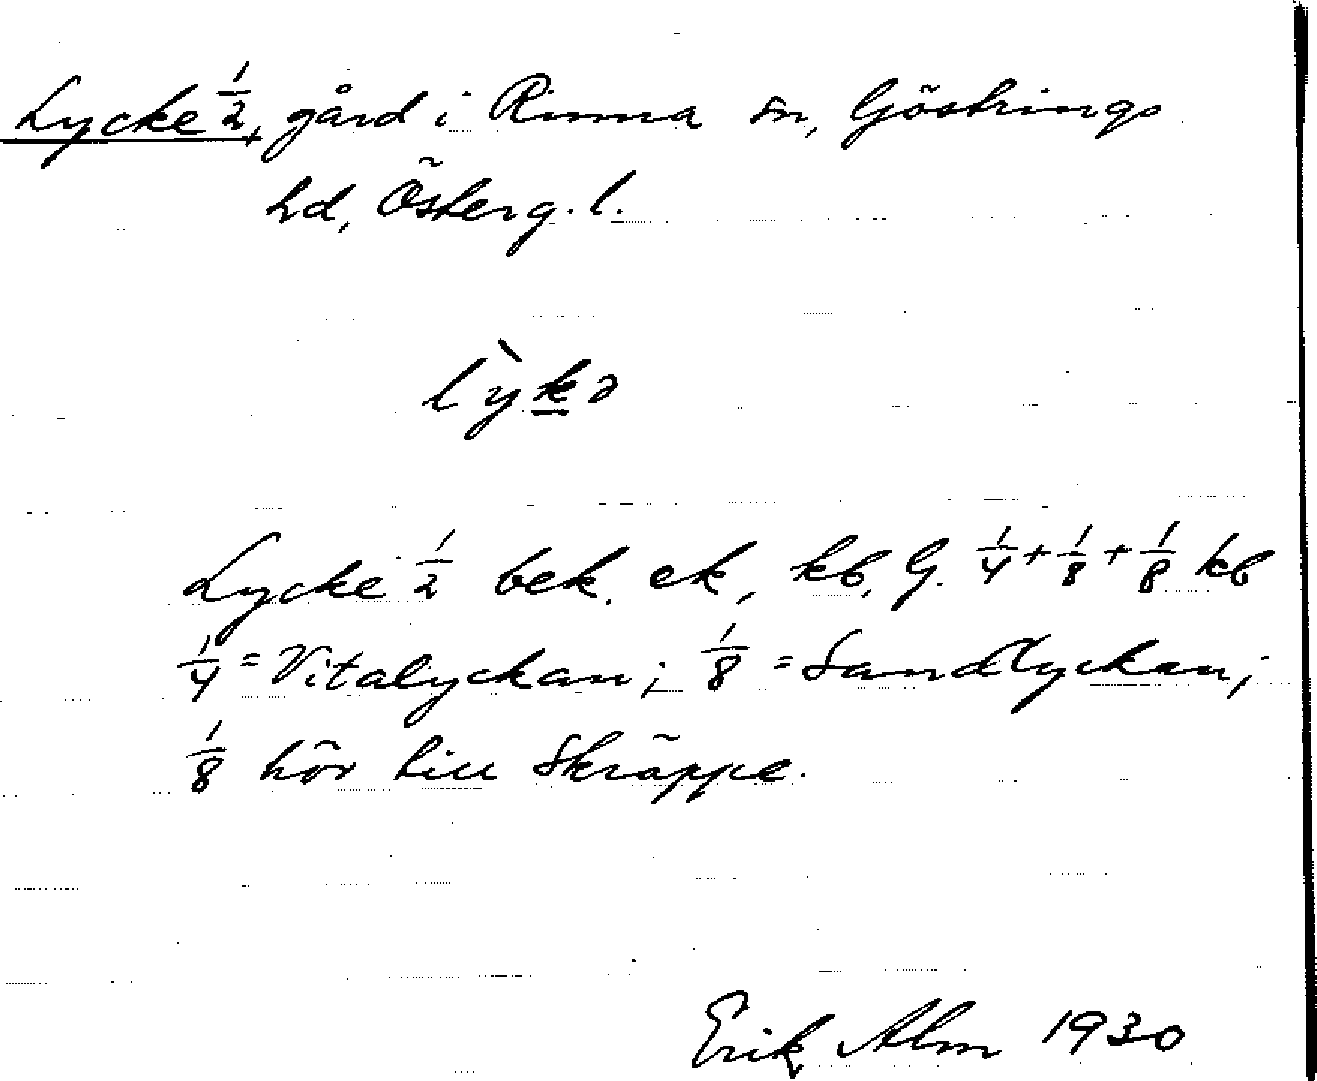 Lycke 1/2, gård i Rinna sn, Göstrings
hd, Österg. l.
lỳkə
Lycke 1/2 bek. ek, kb, G. 1/4 + 1/8 + 1/8 kb
1/4 = Vitalyckan; 1/8 = Sandlyckan;
1/8 hör till Skräppe.
Erik Alm 1930